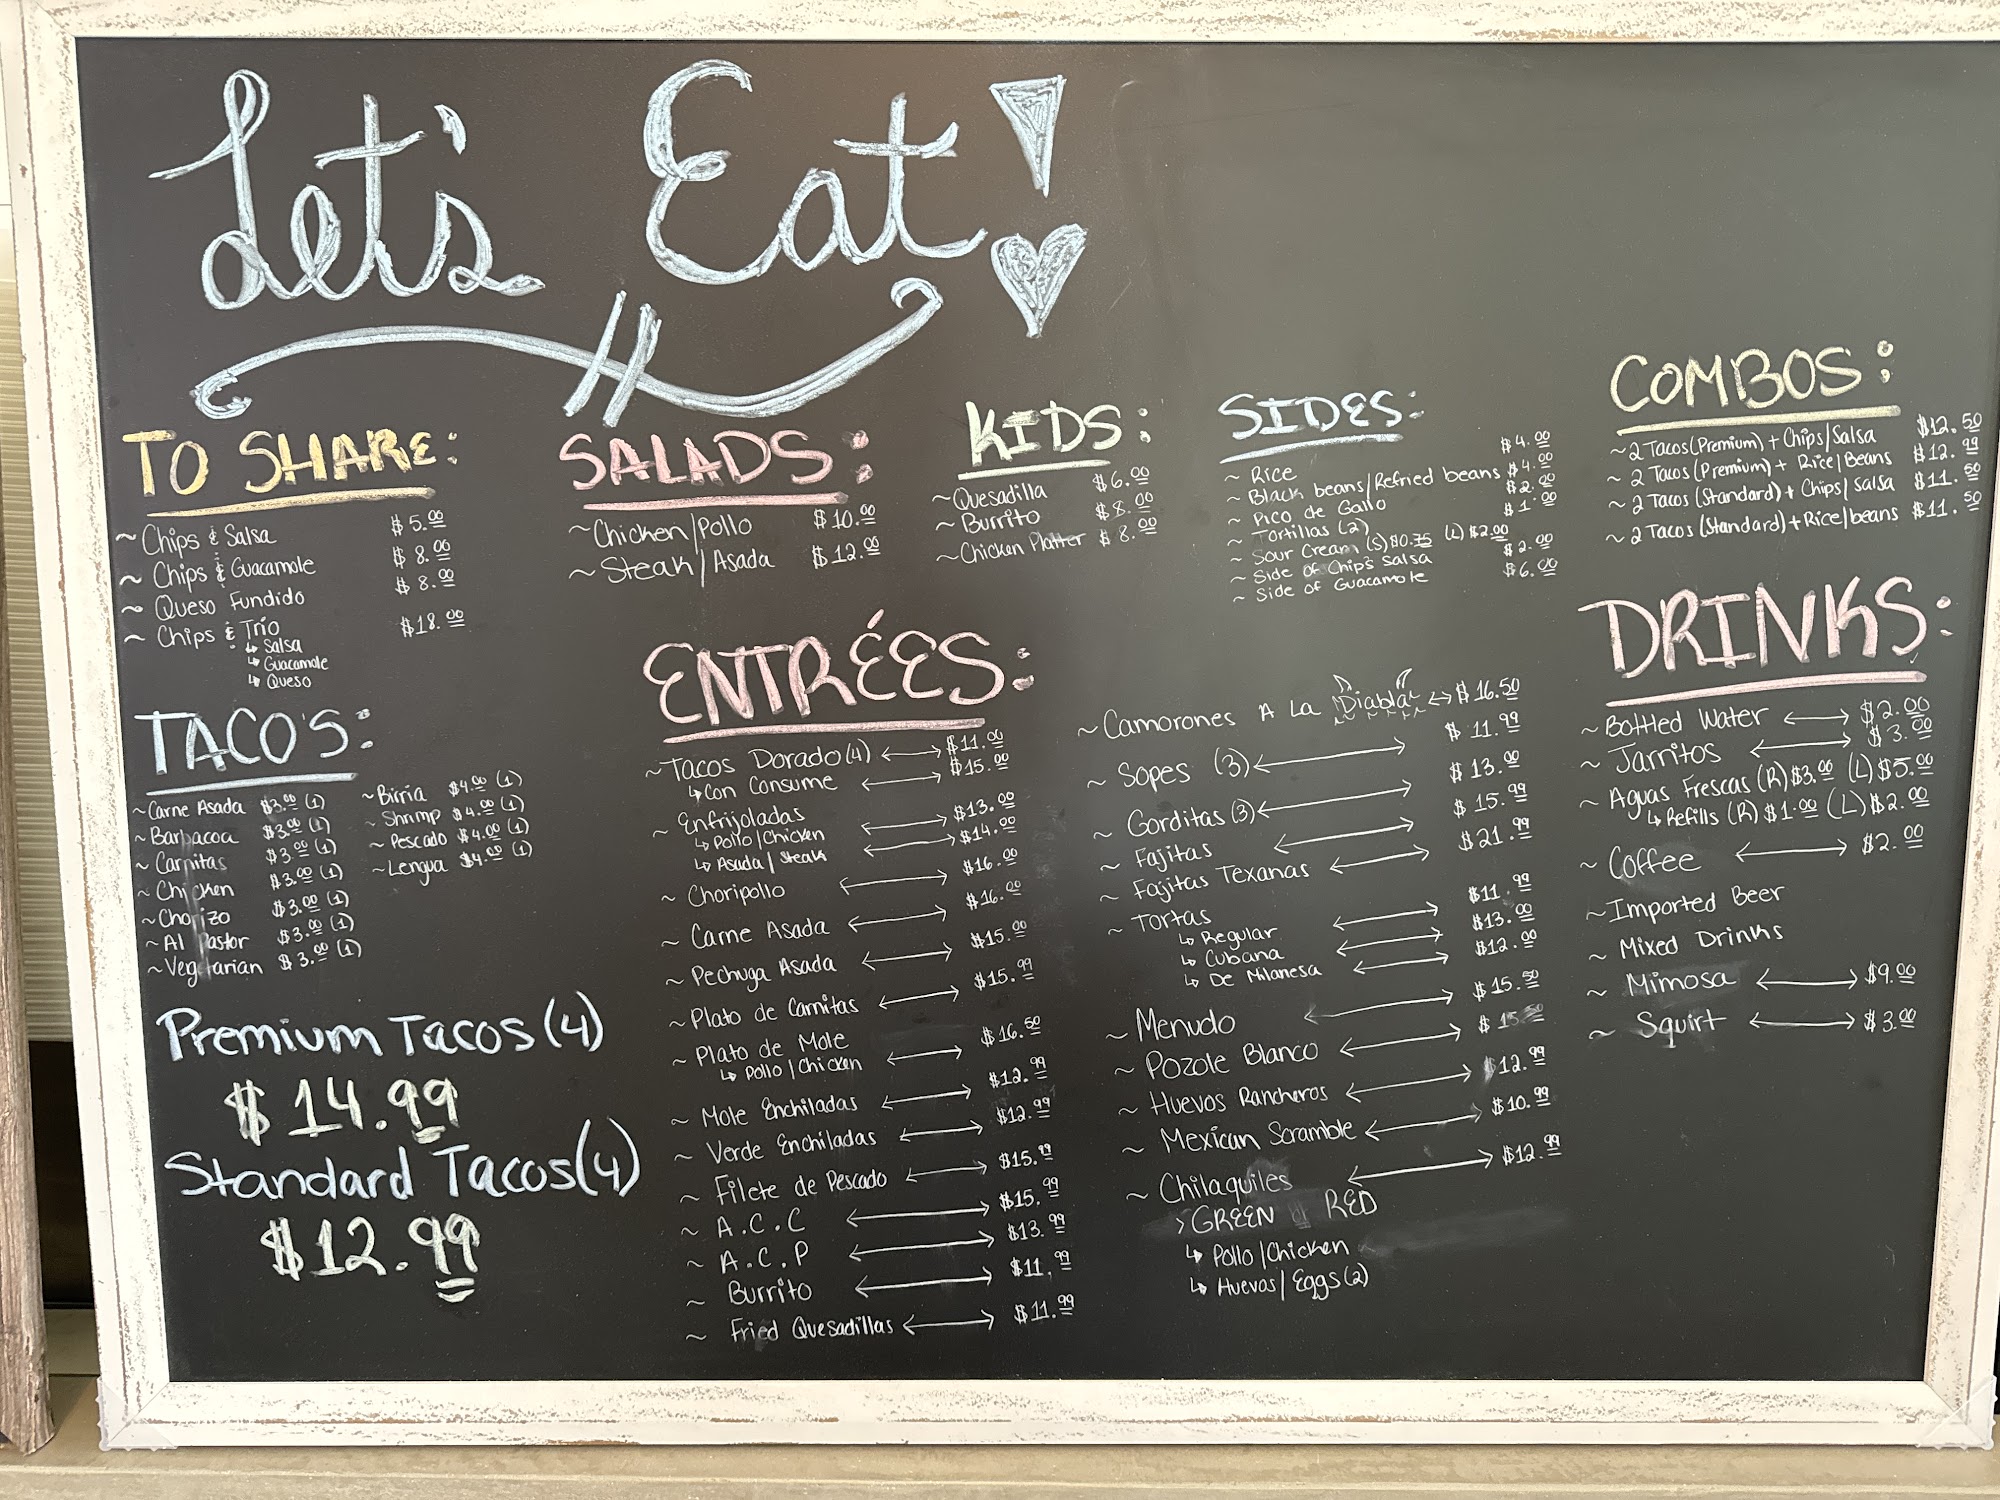 Let's Eat!
TO SHARE:
~ Chips & Salsa $5.00
~ Chips & Guacamole $8.00
~ Queso Fundido $8.00
~ Chips & Trio $18.00
↳ Salsa
↳ Guacamole
↳ Queso
TACO'S:
~ Carne Asada $3.00 (1)
~ Barbacoa $3.00 (1)
~ Carnitas $3.00 (1)
~ Chicken $3.00 (1)
~ Chorizo $3.00 (1)
~ Al Pastor $3.00 (1)
~ Vegetarian $3.00 (1)
~ Birria $4.00 (1)
~ Shrimp $4.00 (1)
~ Pescado $4.00 (1)
~ Lengua $4.00 (1)
Premium Tacos (4)
$14.99
Standard Tacos (4)
$12.99
SALADS:
~ Chicken/Pollo $10.00
~ Steak/Asada $12.00
KIDS:
~ Quesadilla $6.00
~ Burrito $8.00
~ Chicken Platter $8.00
SIDES:
~ Rice $4.00
~ Black beans/Refried beans $4.00
~ Pico de Gallo $2.00
~ Tortillas (2) $1.00
~ Sour Cream (S) $0.75 (L) $2.00
~ Side of Chips Salsa $2.00
~ Side of Guacamole $6.00
COMBOS:
~ 2 Tacos (Premium) + Chips/Salsa $12.50
~ 2 Tacos (Premium) + Rice/Beans $12.99
~ 2 Tacos (Standard) + Chips/Salsa $11.50
~ 2 Tacos (Standard) + Rice/beans $11.50
ENTRÉES:
~ Tacos Dorado (4) $11.00
↳ Con Consume $15.00
~ Enfrijoladas
↳ Pollo/Chicken $13.00
↳ Asada/Steak $14.00
~ Choripollo $16.00
~ Carne Asada $16.00
~ Pechuga Asada $15.00
~ Plato de Carnitas $15.99
~ Plato de Mole
↳ Pollo/Chicken $16.50
~ Mole Enchiladas $12.99
~ Verde Enchiladas $12.99
~ Filete de Pescado $15.99
~ A.C.C $15.99
~ A.C.P $13.99
~ Burrito $11.99
~ Fried Quesadillas $11.99
~ Camorones A La Diabla $16.50
~ Sopes (3) $11.99
~ Gorditas (3) $13.00
~ Fajitas $15.99
~ Fajitas Texanas $21.99
~ Tortas
↳ Regular $11.99
↳ Cubana $13.00
↳ De Milanesa $12.00
~ Menudo $15.50
~ Pozole Blanco $15.50
~ Huevos Rancheros $12.99
~ Mexican Scramble $10.99
~ Chilaquiles $12.99
> GREEN or RED
↳ Pollo/Chicken
↳ Huevos/Eggs (2)
DRINKS:
~ Bottled Water $2.00
~ Jarritos $3.00
~ Aguas Frescas (R) $3.00 (L) $5.00
↳ Refills (R) $1.00 (L) $2.00
~ Coffee $2.00
~ Imported Beer
~ Mixed Drinks
~ Mimosa $9.00
~ Squirt $3.00